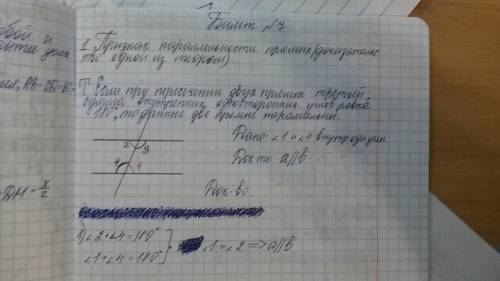 Билет №7
1 Признак параллельности прямых (доказательс
тво одной из теорем)
Т. Если при пересечении двух прямых третьей
сумма внутренних односторонних углов равна
180°, то данные две прямые параллельны.
Дано: ∠1 и ∠4 внутр. одн. углы
Док-ть: a||b
Док-во:
2
3
4
1
1) ∠2+∠4=180°
∠1+∠4=180°
∠1=∠2 => a||b
обой и